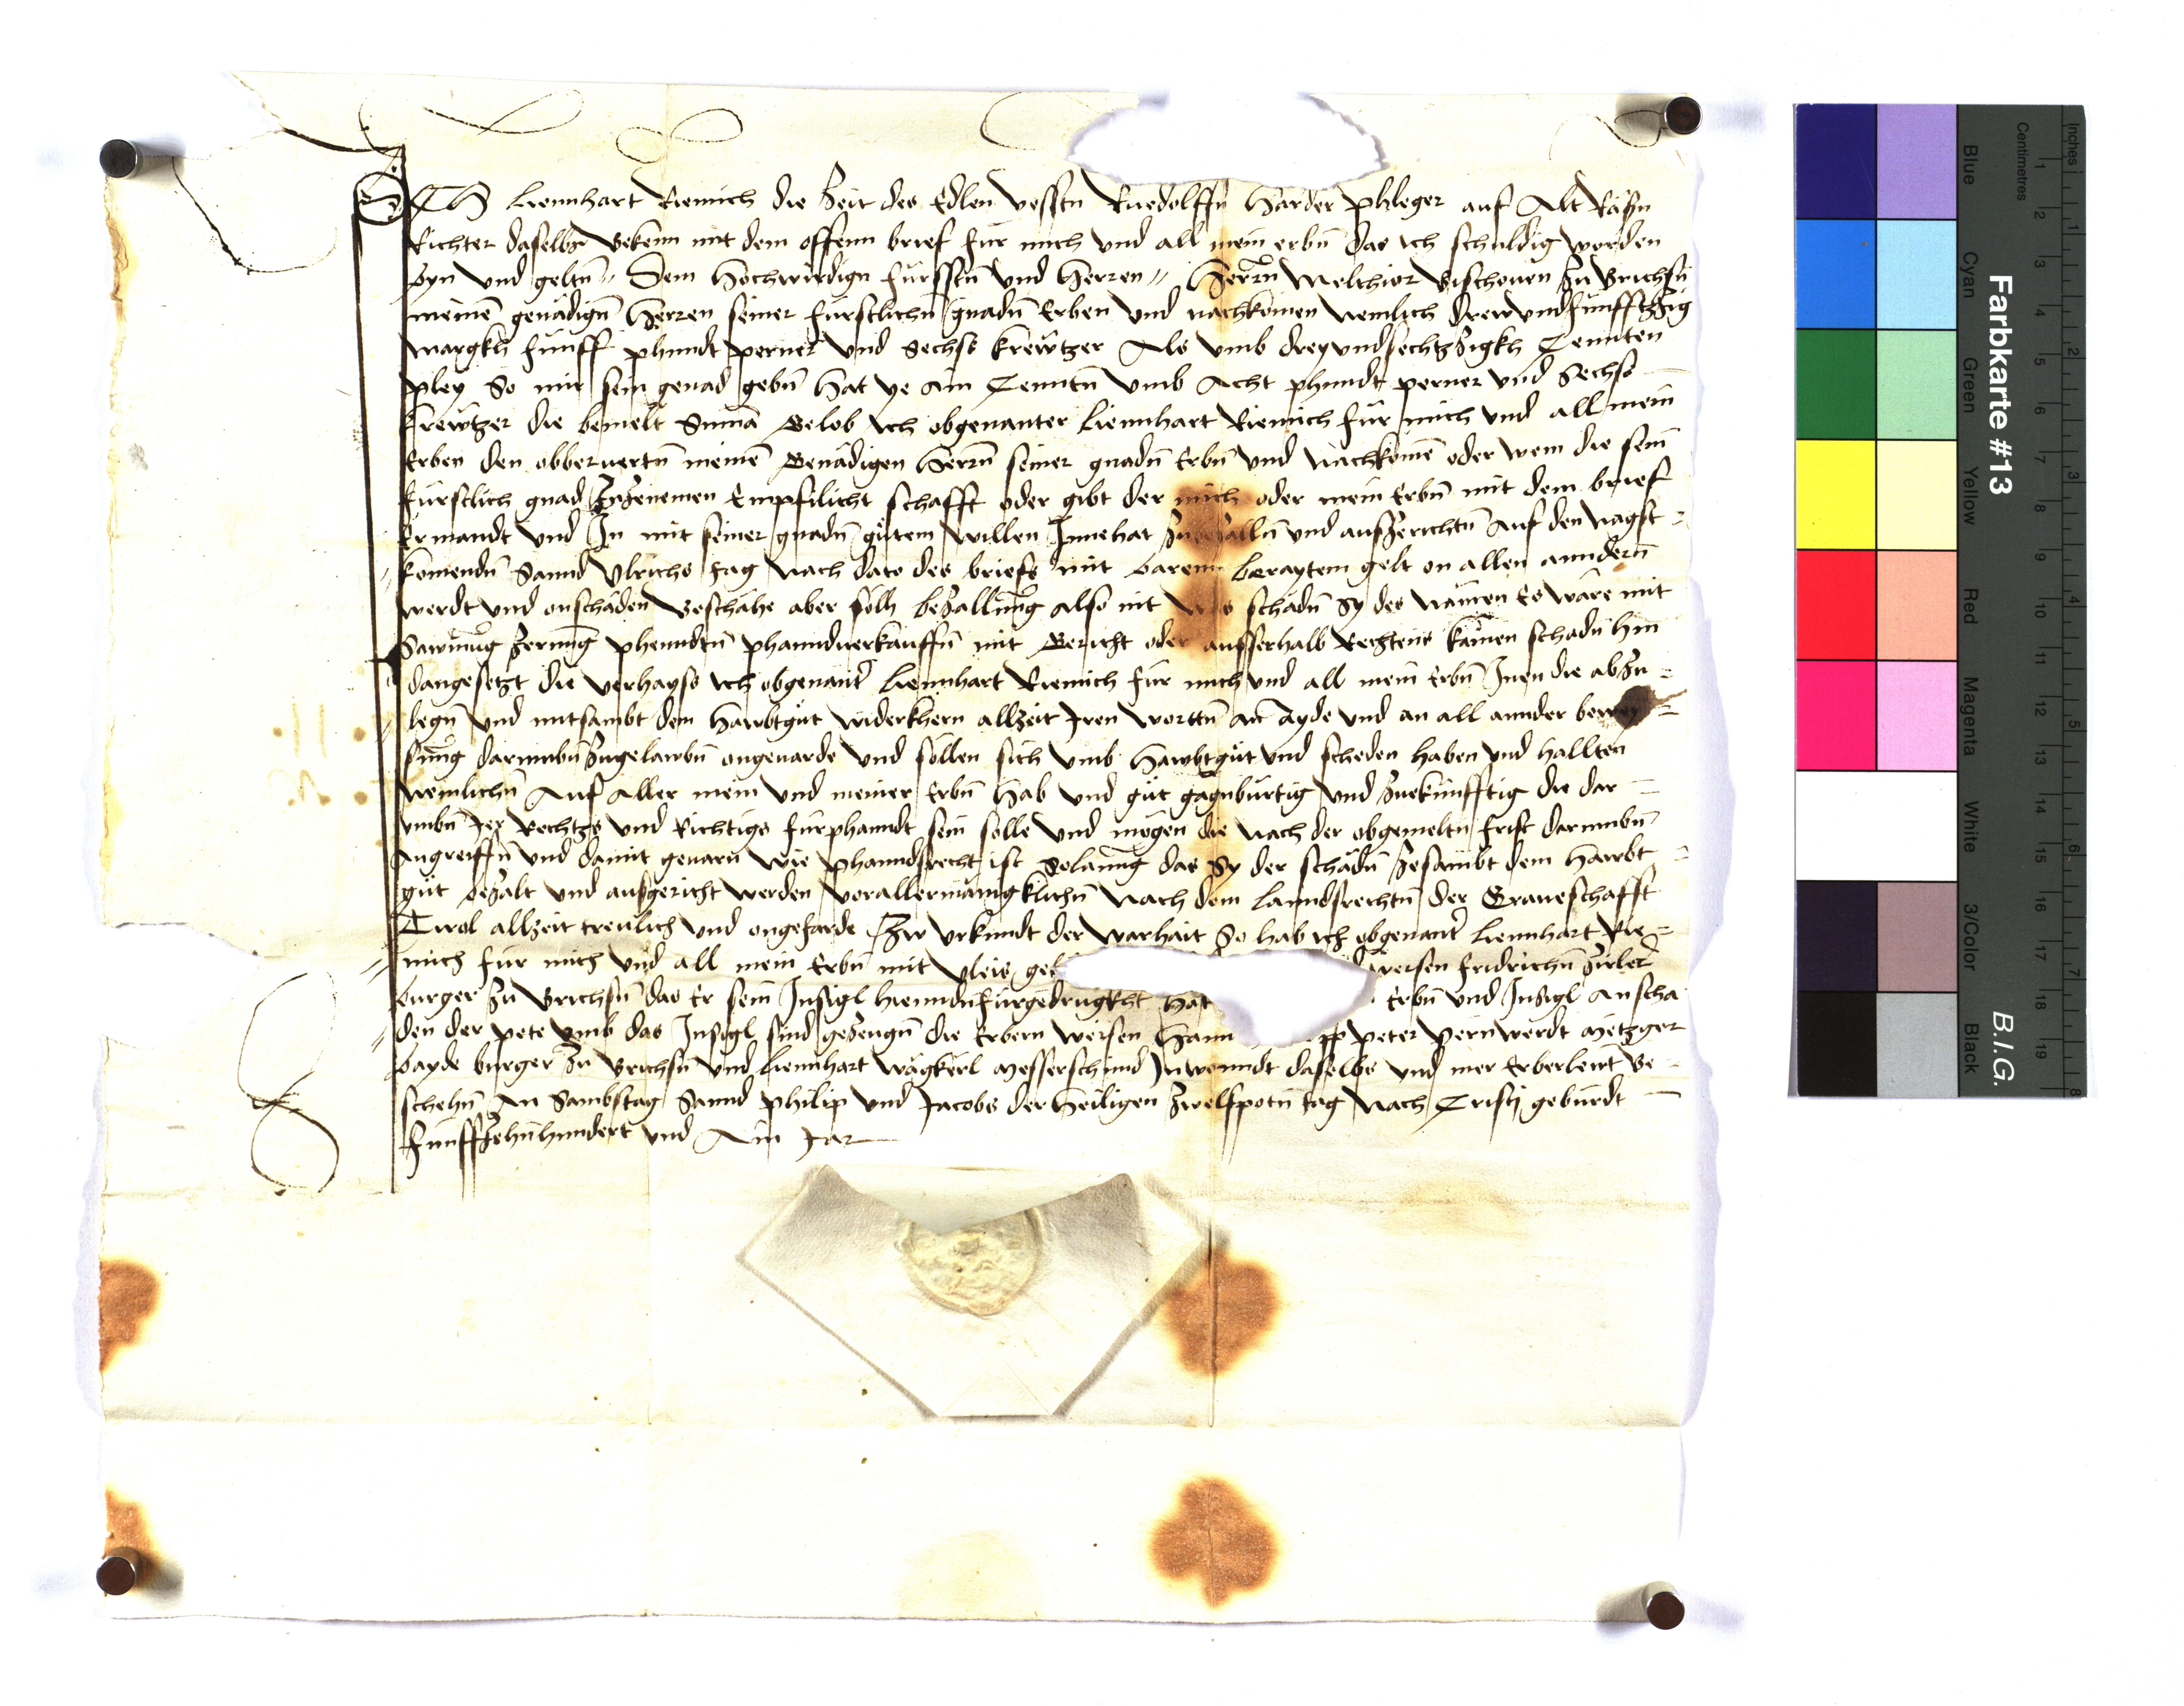 ICH Liennhart Riemich die Zeit des Edlen vesstn Ruedolffn Harder Phleger auf Alt Rasn
Richter daselbs Bekenn mit dem offenn brief fur mich und all mein erbn das ich schuldig worden
byn und geltn Dem Hochwirdign furfstn und Herren Herrn Melchior Bischouen zu Brichsn
meinem genädign Herren seiner furstlichn gnadn Erben und nachkomen Nemlich drew und funfftzig
margkh funff phundt perner und Sechs krewtzer Als umb drey und sechtzigkh Zennten
pley So mir sein genad gebn hat ye ain Zenntn umb Acht phundt perner und Sechs
krewtzer die bemelt Suma Gelob ich obgenanter Liennhart Riemich für mich und all mein
Erben den obberuertn meinem Genädigen Herrn seiner gnadn Erbn und nachkomen oder wem die sein
furstlich gnad zuzenemen Empfilicht schafft oder gibt der mich oder mein Erbn mit dem brief
Ermandt und In mit seiner gnadn gutem willen Innehat zubezalln und auszerichtn Auf den nagst
komendn Sannd Ulrichs tag Nach dato des briefs mit barem beraytem gelt on allen anndern
werdt und on schaden Beschähe aber sölh bezallung also nit was schädn sy des nämen Es wäre mit
Sawmug zerung phenndtn phanndverkauffn mit Gericht oder ausserhalb Rechtens kainen schadn hin
dangesetzt die verhayss ich obgenantr Liennhart Riemich für mich und all mein Erbn Inen die abzu
legn und mitsambt dem Hawbtgut widerkhern allzeit Iren worttn an ayde und an all annder bewey
sung darumbn zugelawbn ongeuarde und söllen sich umb Hawbtgut und scheden haben und hallten
Nemlichn Auf aller mein und meiner Erbn Hab und gut gagnburtig und zuekunfftig die dar
umbn Ir Rechtzs und Richtigs furphanndt sein solle und mögen die nach der obgemeltn frist darumbn
Angreiffn und damit geuarn wie phanndsrecht ist Solanng das Sy der schädn zesambt dem hawbt
gut bezalt und ausgericht werden vor allermänigklichn Nach dem lanndsrechtn der Graueschafft
Tirol allzeit treulich und ongefarde Zu Urkundt der warhait So hab ich obgenantr Liennhart Rie
mich fur mich und all mein Erbn mit vleis weisen Fridrichn
burger zu Brichsn das Er sein Insigl hieundn fürgedrugkht hat Erbn und Insigl An scha
den der pete umb das Insigl sind gezeugn die Erbern weisen Peter Peinwerdt Metzger
bayde burger zu Brichsn und Liennhart Wägkerl Messerschmid Inwonndt daselbs und mer Erber lewt Be
schehn An Sambstag Sannd Philip und Jacobs der Heiligen zwelfpotn tag Nach Cristj geburdt
funfftzehnhundert und Ain Jar
Farbkarte #13
B.I.G.
Inches
Centimetres
1 2 3 4 5 6 7 8 9 10 11 12 13 14 15 16 17 18 19
1 2 3 4 5 6 7 8
Blue
Cyan
Green
Yellow
Red
Magenta
White
3/Color
Black